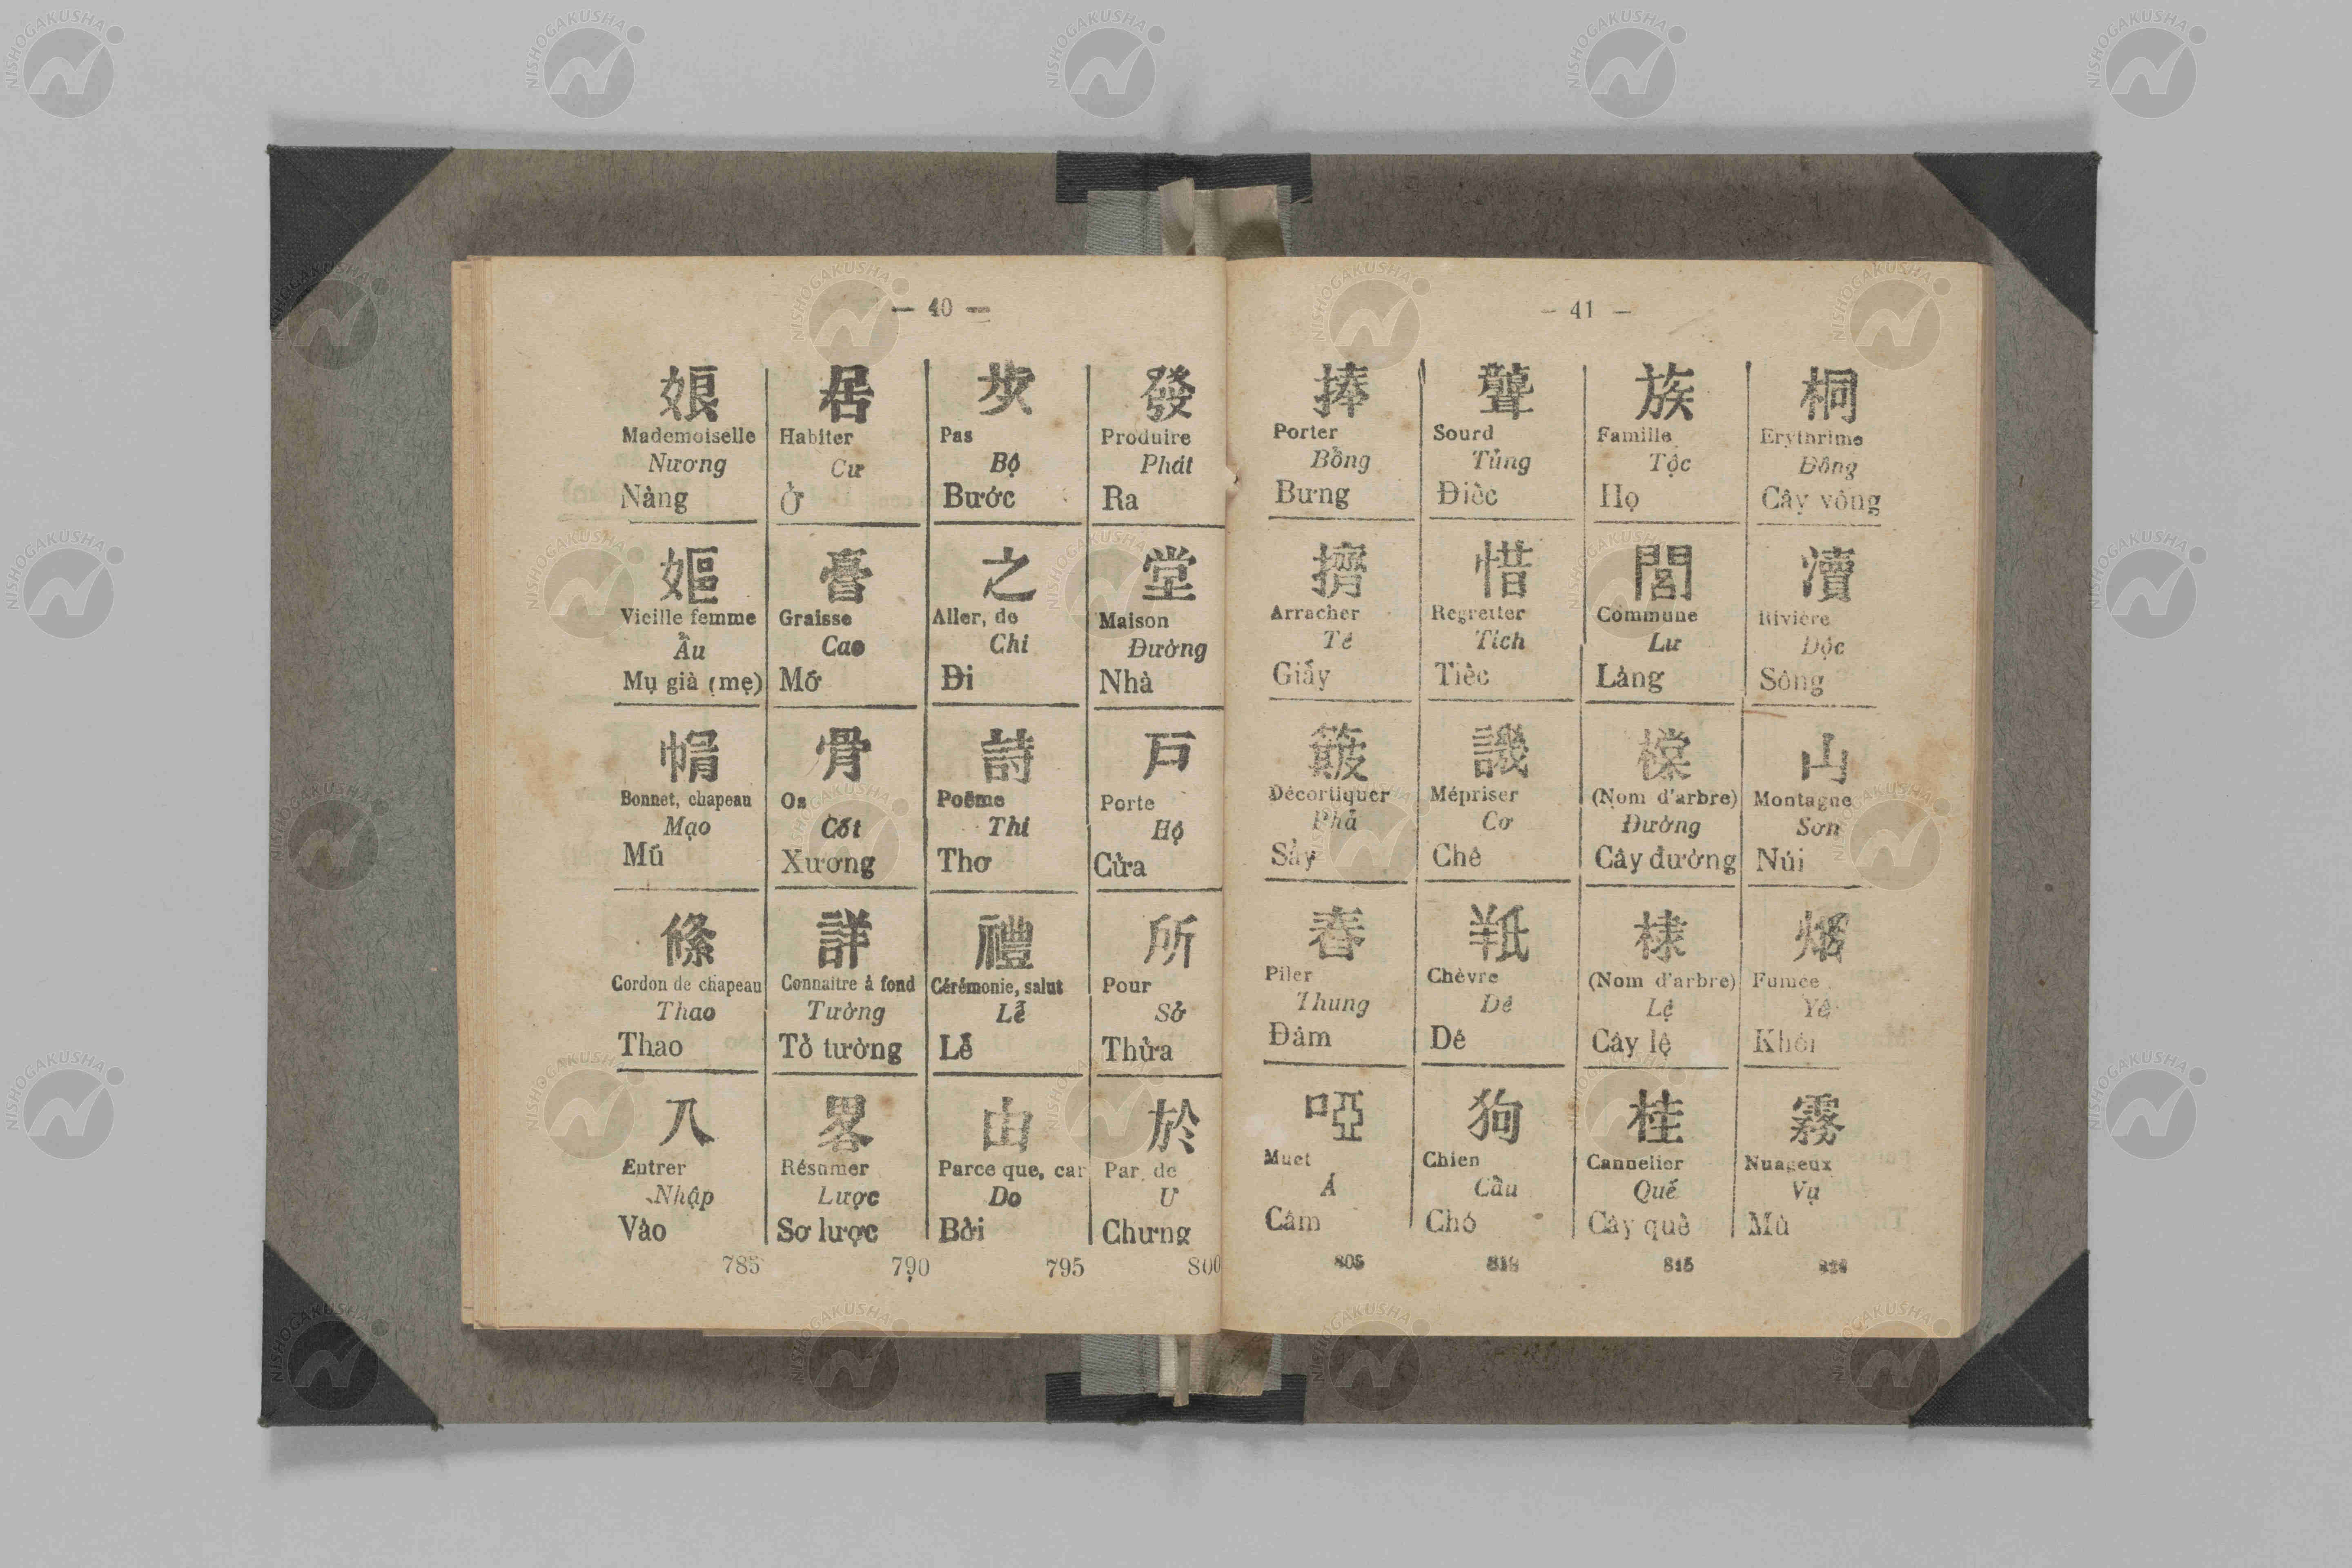 — 40 —
娘
Mademoiselle
Nương
Nàng
嫗
Vieille femme
Ẩu
Mụ già (mẹ)
帽
Bonnet, chapeau
Mạo
Mũ
絛
Cordon de chapeau
Thao
Thao
入
Entrer
Nhập
Vào
785
居
Habiter
Cư
Ở
膏
Graisse
Cao
Mỡ
骨
Os
Cốt
Xương
詳
Connaitre à fond
Tường
Tỏ tường
畧
Résumer
Lược
Sơ lược
790
步
Pas
Bộ
Bước
之
Aller, de
Chi
Đi
詩
Poême
Thi
Thơ
禮
Cérémonie, salut
Lễ
Lễ
由
Parce que, car
Do
Bởi
795
發
Produire
Phát
Ra
堂
Maison
Đường
Nhà
戸
Porte
Hộ
Cửa
所
Pour
Sở
Thửa
於
Par, de
Ư
Chưng
800
— 41 —
捧
Porter
Bồng
Bưng
擠
Arracher
Tê
Giấy
簸
Décortiquer
Phả
Sảy
舂
Piler
Thung
Đâm
啞
Muet
Á
Câm
805
聾
Sourd
Tủng
Điếc
惜
Regretter
Tích
Tiếc
譏
Mépriser
Cơ
Chê
羝
Chèvre
Dê
Dê
狗
Chien
Cẩu
Chó
810
族
Famille
Tộc
Họ
閭
Commune
Lư
Làng
棠
(Nom d'arbre)
Đường
Cây đường
棣
(Nom d'arbre)
Lệ
Cây lệ
桂
Cannelier
Quế
Cây quế
815
桐
Erythrime
Đồng
Cây vông
瀆
Rivière
Độc
Sông
山
Montagne
Sơn
Núi
烟
Fumée
Yên
Khói
霧
Nuageux
Vụ
Mù
NISHOGAKUSHA